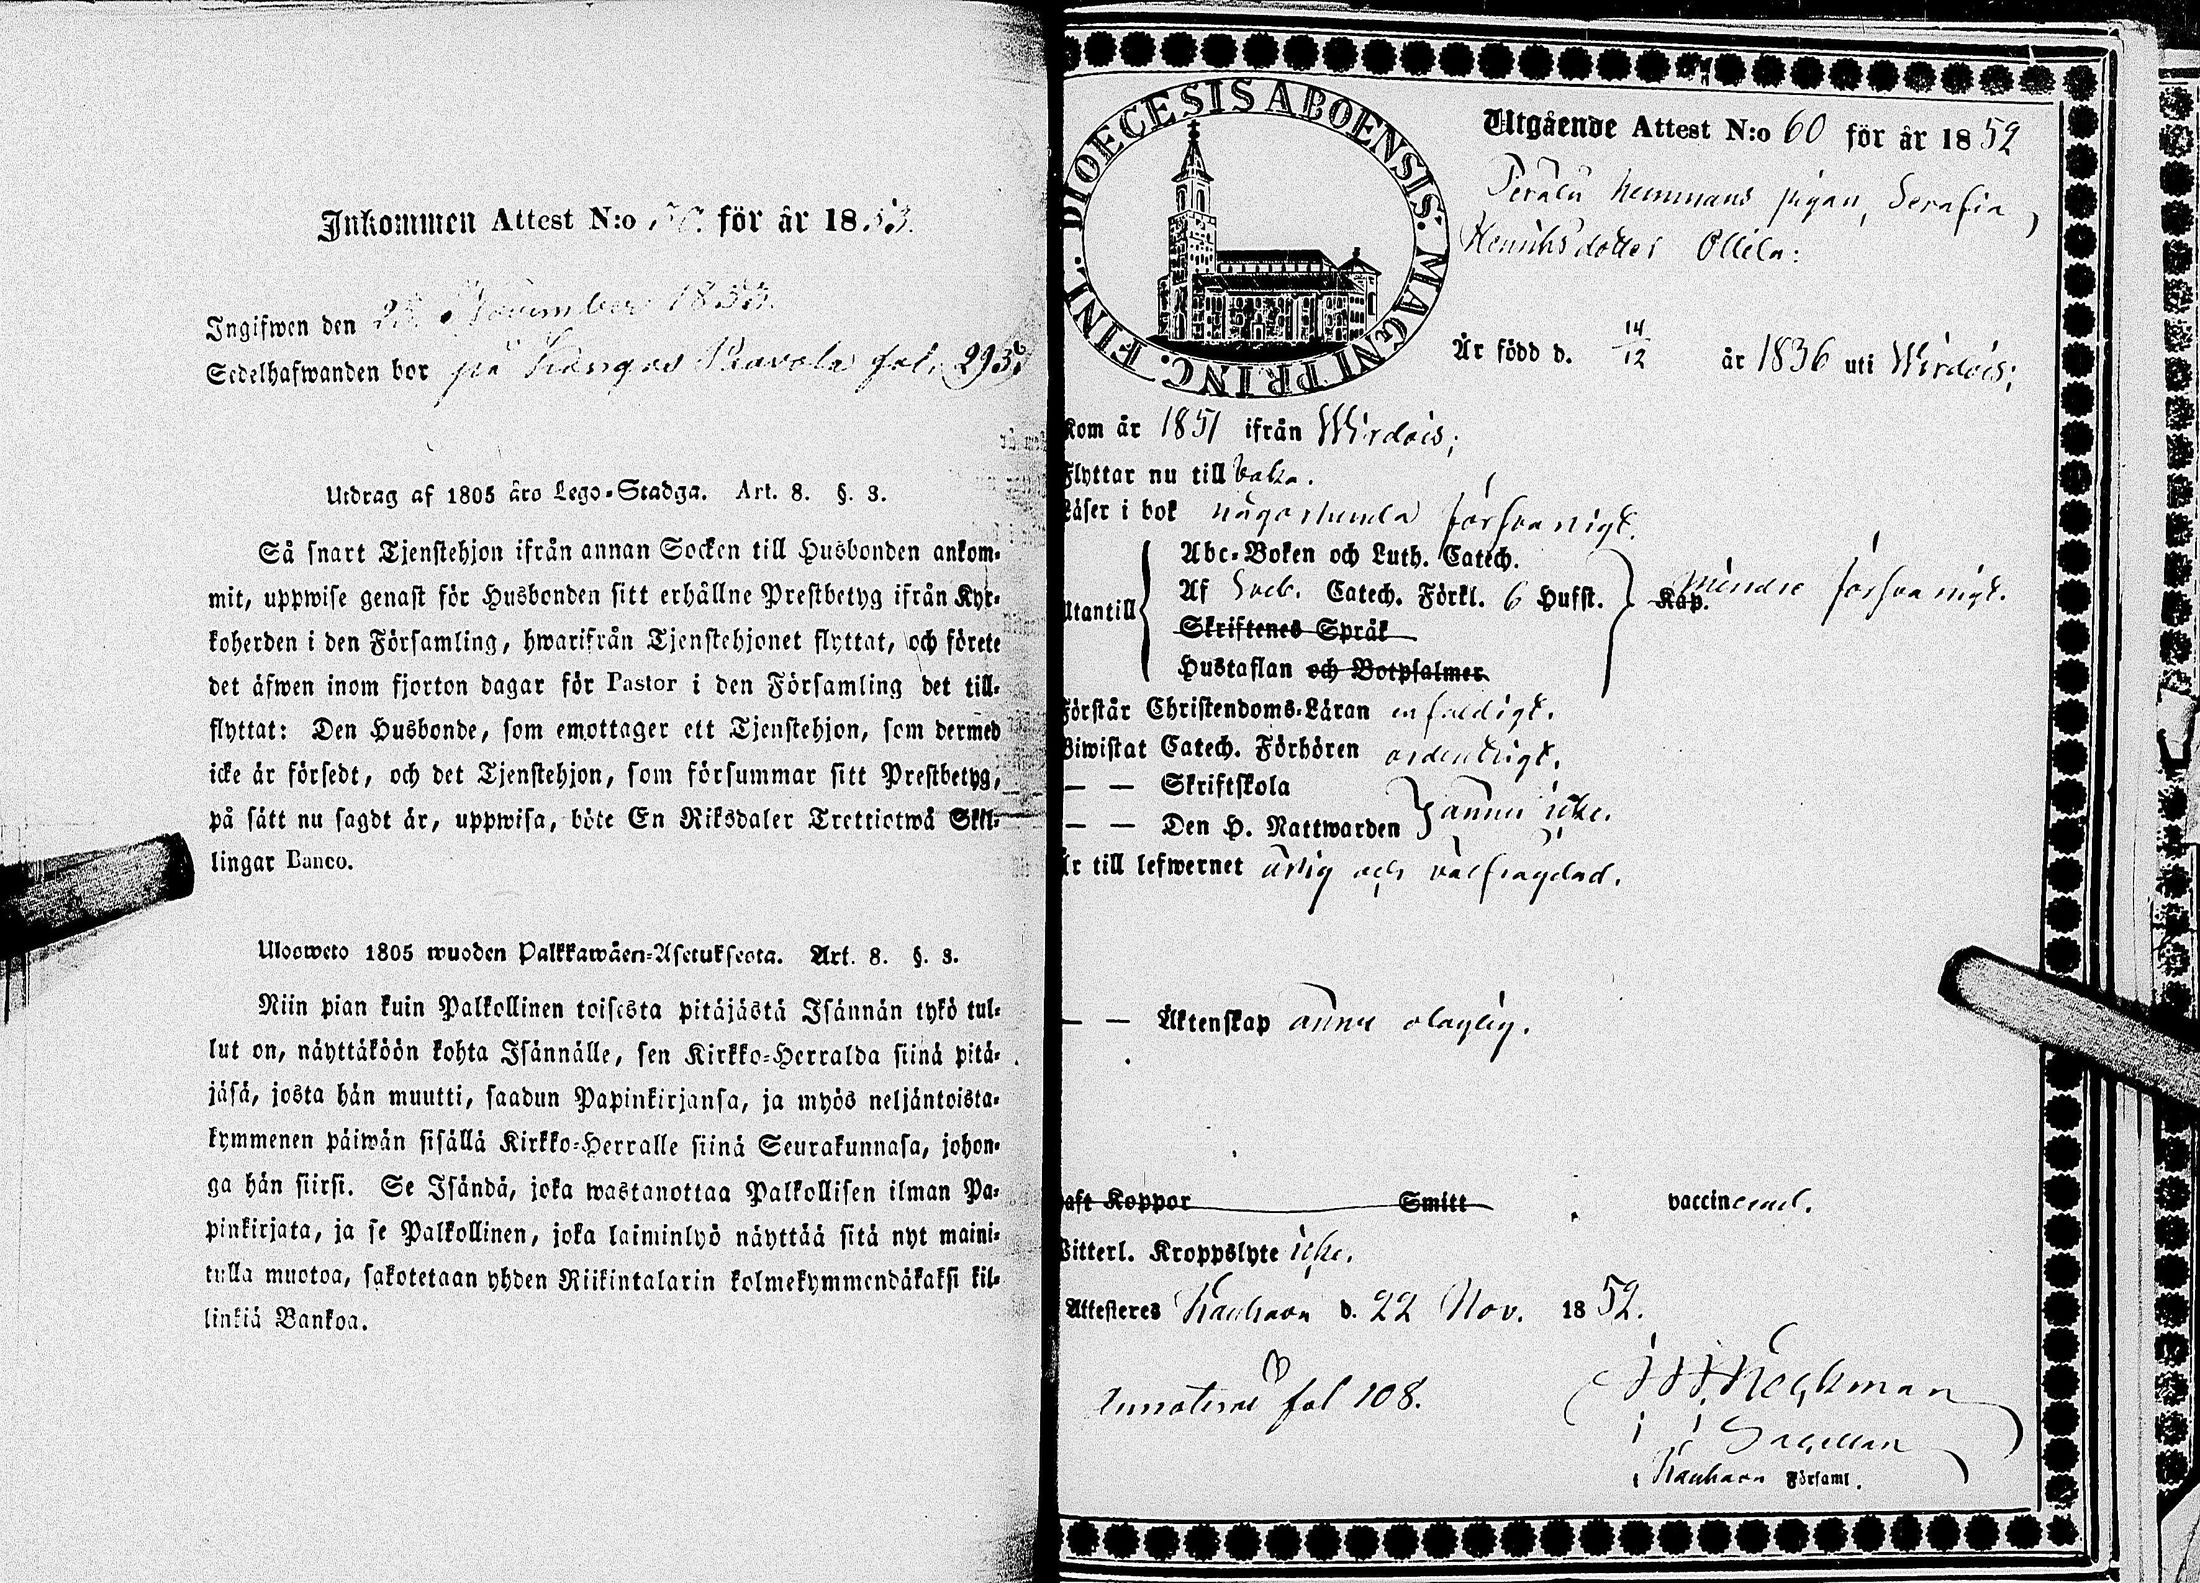 Inkommen Attest N:o för år 1853.
Ingifwen den 23 November 1853.
Sedelhafwanden bor på Kangas Pavola fol. 293.
Utdrag af 1805 åro Lego-Stadga. Art. 8. §. 3.
Så snart Tjenstehjon ifrån annan Socken till Husbonden ankom-
mit, uppwise genast för Husbonden sitt erhållne Prestbetyg ifrån Kyr-
koherden i den Församling, hwarifrån Tjenstehjonet flyttat, och förete
det äfwen inom fjorton dagar för Pastor i den Församling det till-
flyttat: Den Husbonde, som emottager ett Tjenstehjon, som dermed
icke är försedt, och det Tjenstehjon, som försummar sitt Prestbetyg,
på sätt nu sagdt är, uppwisa, böte En Riksdaler Trettiotwå Skil-
lingar Banco.
Uloosweto 1805 wuoden Palkkawäen-Asetuksesta. Art. 8. §. 3.
Niin pian kuin Palkollinen toisesta pitäjästä Isännän tykö tul-
lut on, näyttäköön kohta Isännälle, sen Kirkko-Herralda siinä pitä-
jäsä, josta hän muutti, saadun Papinkirjansa, ja myös neljäntoista-
kymmenen päiwän sisällä Kirkko-Herralle siinä Seurakunnasa, johon-
ga hän siirsi. Se Isändä, joka wastanottaa Palkollisen ilman Pa-
pinkirjata, ja se Palkollinen, joka laiminlyö näyttää sitä nyt maini-
tulla muotoa, sakotetaan yhden Riikintalarin kolmekymmendäkaksi kil-
linkiä Bankoa.
DIOECESIS ABOENSIS. MAGNI PRINC. FINL.
Utgående Attest N:o 60 för år 1852
Perälä hemmans pigan, Serafia
Henriksdotter Ollila:
Är född d. 14/12 år 1836 uti Wirdois;
Kom år 1851 ifrån Wirdois;
Flyttar nu till baka.
Läser i bok någorlunda försvarligt.
Utantill
Abc-Boken och Luth. Catech.
Af Sveb. Catech. Förkl. 6 Hufst. Kap. mindre försvarligt.
Skriftenes Språk
Hustaflan och Botpsalmer
Förstår Christendoms-Läran enfaldigt.
Biwistat Catech. Förhören ordentligt.
— — Skriftskola
— — Den H. Nattwarden ännu icke.
Är till lefwernet ärlig och välfrägdad.
— — Äktenskap ännu olaglig.
Haft Koppor Smitt vaccinerad.
Witterl. Kroppslyte icke.
Attesteres Kauhava d. 22 Nov. 1852.
fol 108.
Heckman
Sacellan
Kauhava Församl.